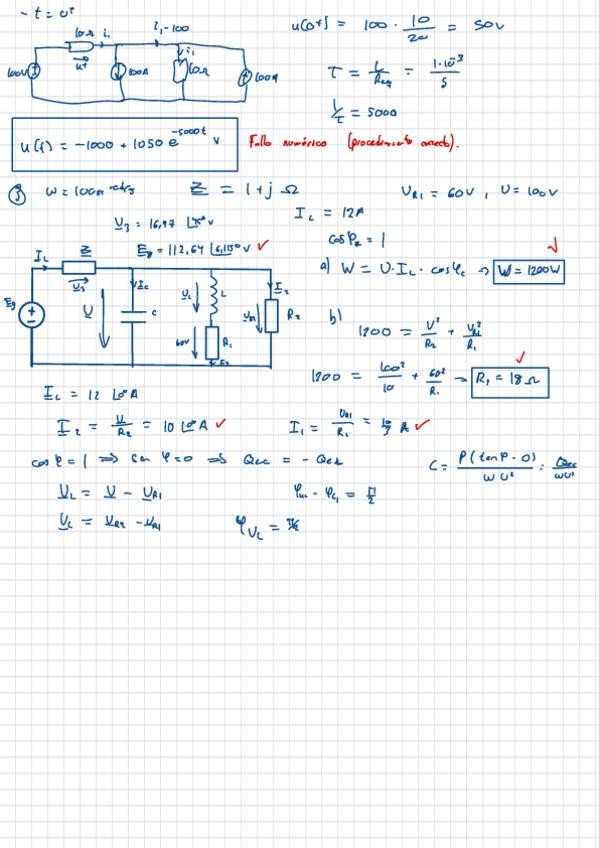 - t = 0⁺
i₁-100
10Ω i₁
u⁺
100V
100A
i₁
10Ω
u(0⁺) = 100 · 10/20 = 50V
τ = L/Req = 1·10⁻³/5
1/τ = 5000
u(t) = -1000 + 1050 e^-5000t V
Fallo numérico (procedimiento correcto).
③ W = 100π rad/s
Z = 1+j Ω
U_R1 = 60V , U = 100V
U_3 = 16,97 |45° V
I_L = 12A
E_g = 112,64 |6,115° V ✓
cos φ_2 = 1
a) W = U·I_L·cos φ_c → W = 1200W ✓
I_L
Z
U_3
Eg
U
I_c
C
U_L
L
60V
R₁
U_R2
I_2
R₂
b)
1200 = U²/R₂ + U_R1²/R₁
1200 = 100²/10 + 60²/R₁ → R₁ = 18 Ω ✓
I_L = 12 |0° A
I_2 = U/R₂ = 10 |0° A ✓
I₁ = U_R1/R₁ = 10/3 A ✓
cos φ = 1 ⟹ sen φ = 0 ⟹ Qcc = - Qcz
C = P(tan φ - 0)/WU² = Qcc/WU²
U_L = U - U_R1
U_L = U_R2 - U_R1
φ_VL = π/2